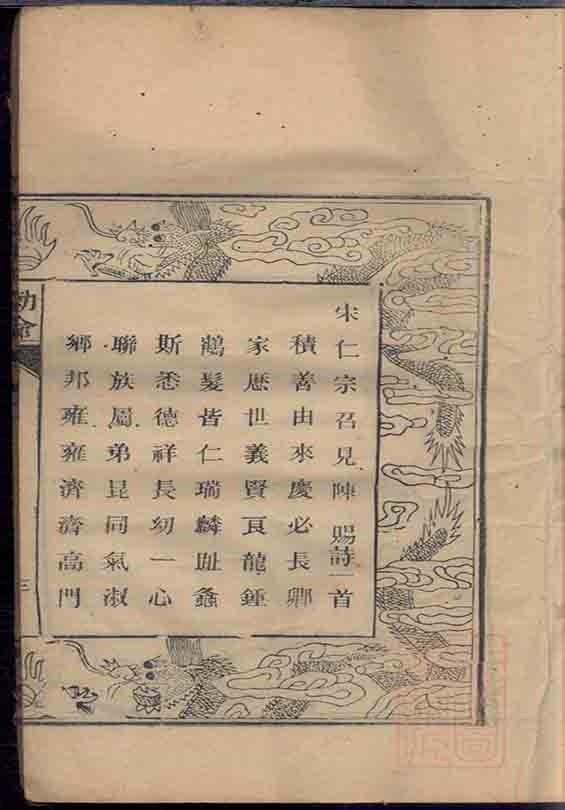 宋仁宗召見陳 賜詩一首
積善由來慶必長卿
家歷世義賢良龍鍾
鶴髮皆仁瑞麟趾螽
斯悉德祥長幼一心
聯族屬弟昆同氣淑
鄉邦雍雍濟濟高門
勅命
三